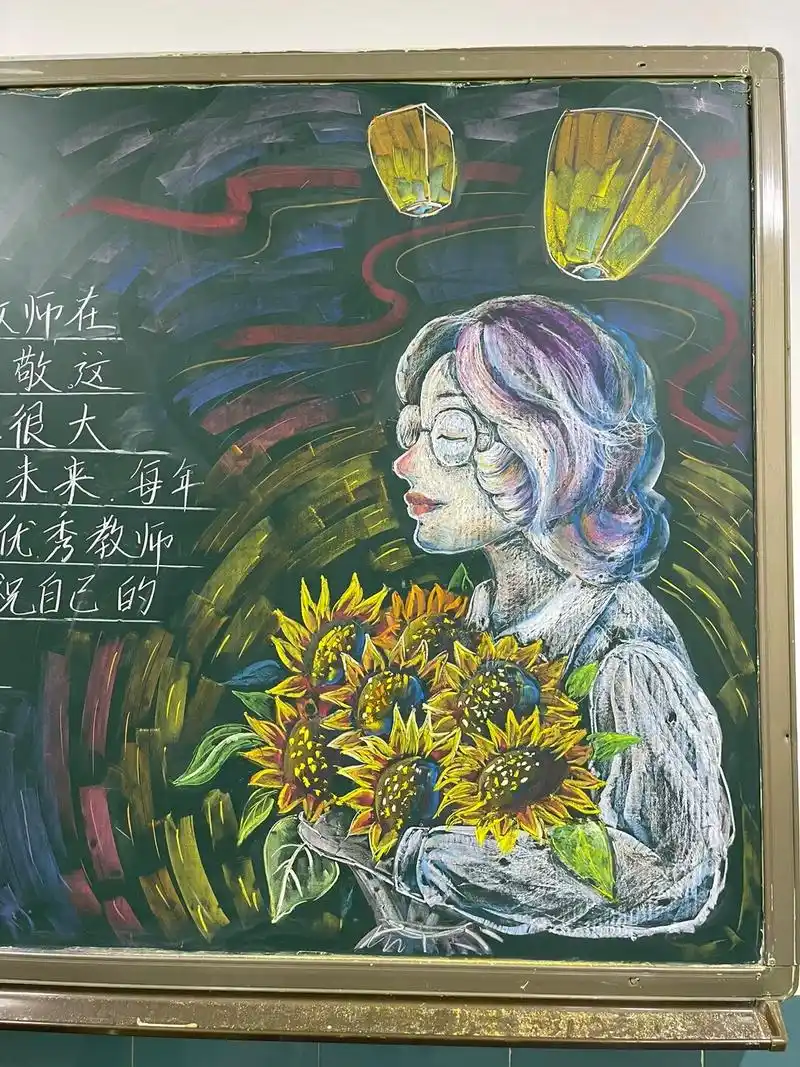 师在
敬这
很大
未来.每年
优秀教师
自己的